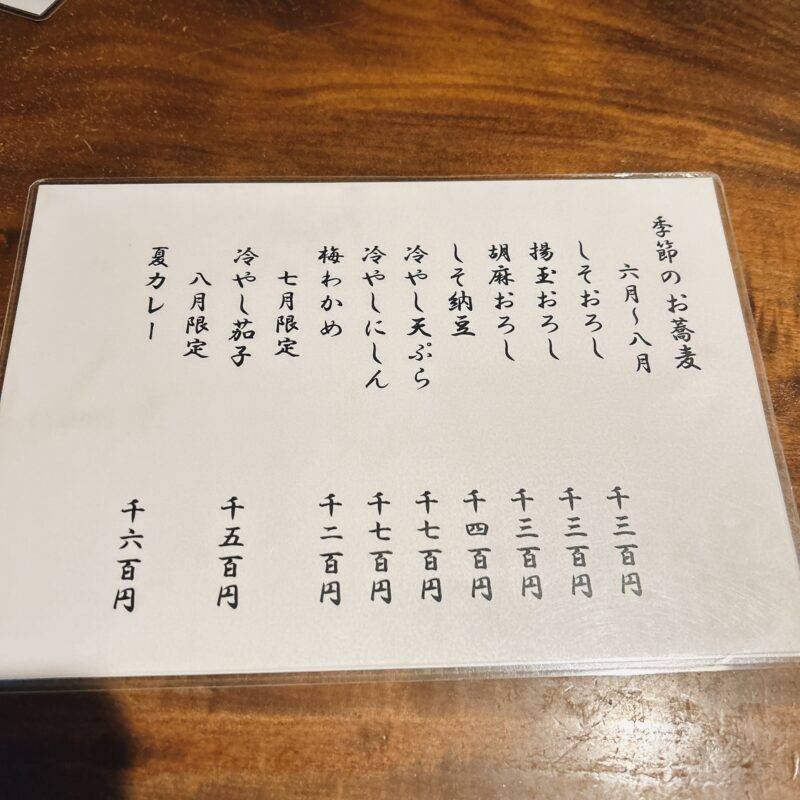 季節のお蕎麦
六月～八月
しそおろし 千三百円
揚玉おろし 千三百円
胡麻おろし 千三百円
しそ納豆 千四百円
冷やし天ぷら 千七百円
冷やしにしん 千七百円
梅わかめ 千二百円
七月限定
冷やし茄子 千五百円
八月限定
夏カレー 千六百円